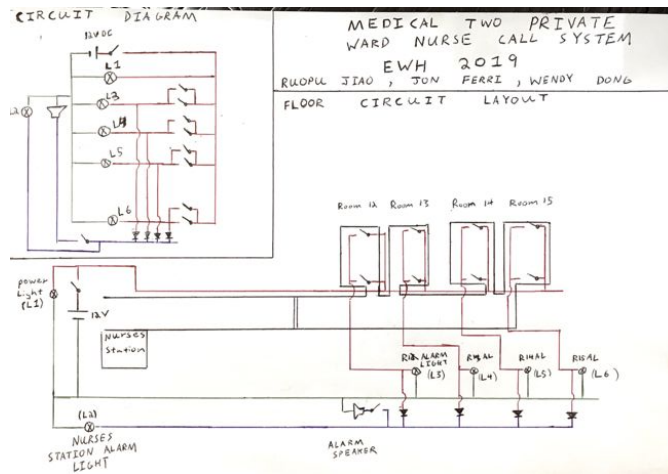 CIRCUIT DIAGRAM
12VDC
L1
L3
L4
L5
L6
MEDICAL TWO PRIVATE
WARD NURSE CALL SYSTEM
EWH 2019
RUOPU JIAO, JON FERRI, WENDY DONG
FLOOR CIRCUIT LAYOUT
Room 12 Room 13 Room 14 Room 15
power
Light
(L1)
12V
Nurses
Station
R12 ALARM
LIGHT
(L3)
R13AL
(L4)
R14AL
(L5)
R15AL
(L6)
(L2)
NURSES
STATION ALARM
LIGHT
ALARM
SPEAKER